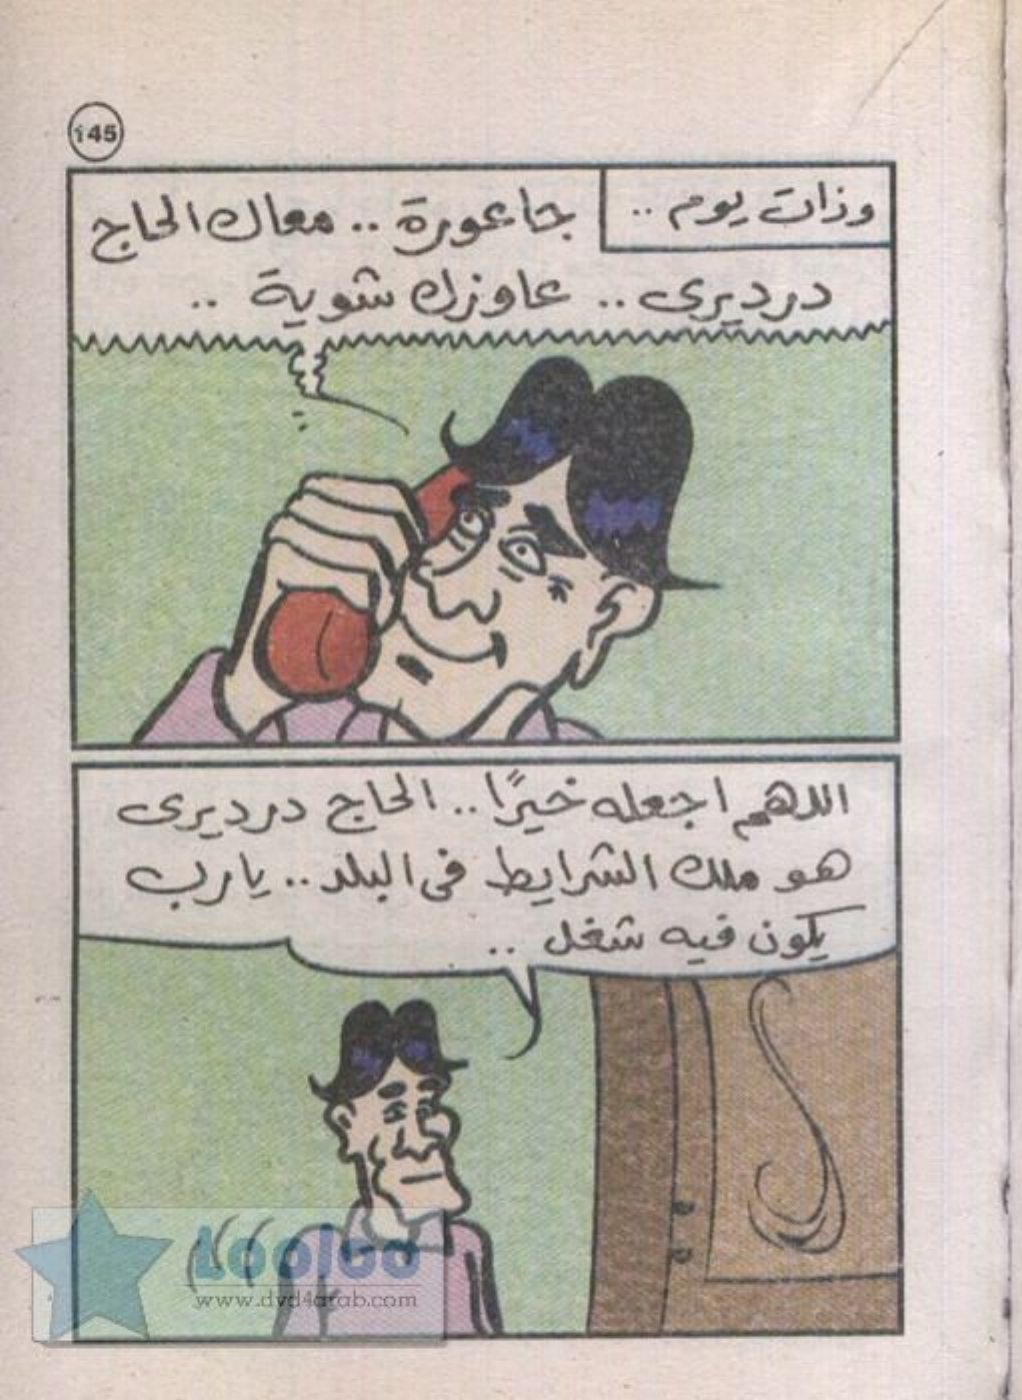 145
وذات يوم ..
جاعورة .. معاك الحاج
درديرى .. عاوزك شوية ..
اللهم اجعله خيرًا .. الحاج درديرى
هو ملك الشرايط فى البلد .. يارب
يكون فيه شغل ..
Looloo
www.dvd4arab.com